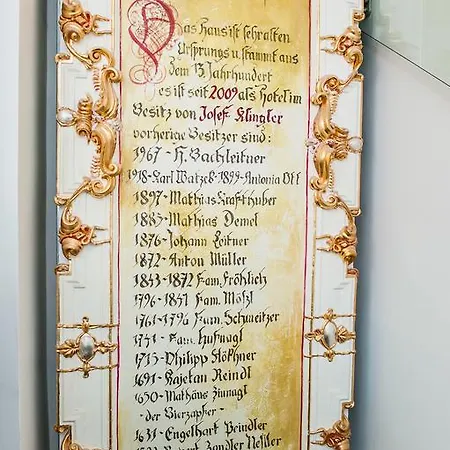 Das Haus ist sehr alten
Ursprungs u. stammt aus
dem 13 Jahrhundert
es ist seit 2009 als Hotel im
Besitz von Josef Klingler
vorherige Besitzer sind:
1967 - H. Bachleitner
1918 - Karl Watzek - 1899 - Antonia Ott
1897 - Mathias Krafthuber
1883 - Mathias Demel
1876 - Johann Leitner
1872 - Anton Müller
1843 - 1872 Fam. Fröhlich
1796 - 1841 Fam. Mößl
1761 - 1796 Fam. Schweitzer
1741 - Fam. Hufnagl
1713 - Philipp Stöckhner
1691 - Kajetan Reindl
1650 - Mathäus Zinnagl
- der Bierzapfer -
1631 - Engelhart Peindler